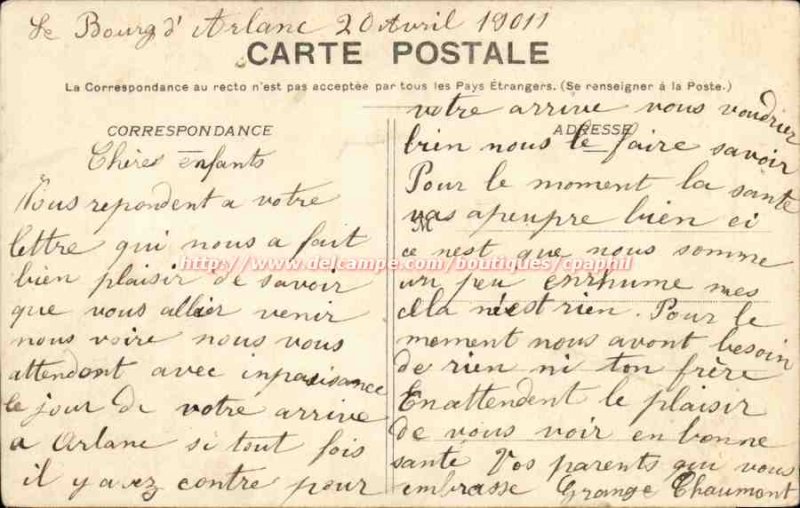 Le Bourg d'Arlanc 20 Avril 19011
CARTE POSTALE
La Correspondance au recto n'est pas acceptée par tous les Pays Étrangers. (Se renseigner à la Poste.)
CORRESPONDANCE
Chères enfants
Nous repondent a votre
lettre qui nous a fait
bien plaisir de savoir
que vous allier venir
nous voire nous vous
attendont avec inpaisance
le jour de votre arrive
a Arlanc si tout fois
il y avez contre pour
ADRESSE
votre arrive vous voudriez
bien nous le faire savoir
Pour le moment la sante
vas apeupre bien ci
M
ce nest que nous somme
un peu enrhume mes
cela n'est rien. Pour le
moment nous avont besoin
de rien ni ton frère
Enattendent le plaisir
de vous voir en bonne
sante Vos parents qui vous
embrasse Grange Chaumont
http://www.delcampe.com/boutiques/cpaphil